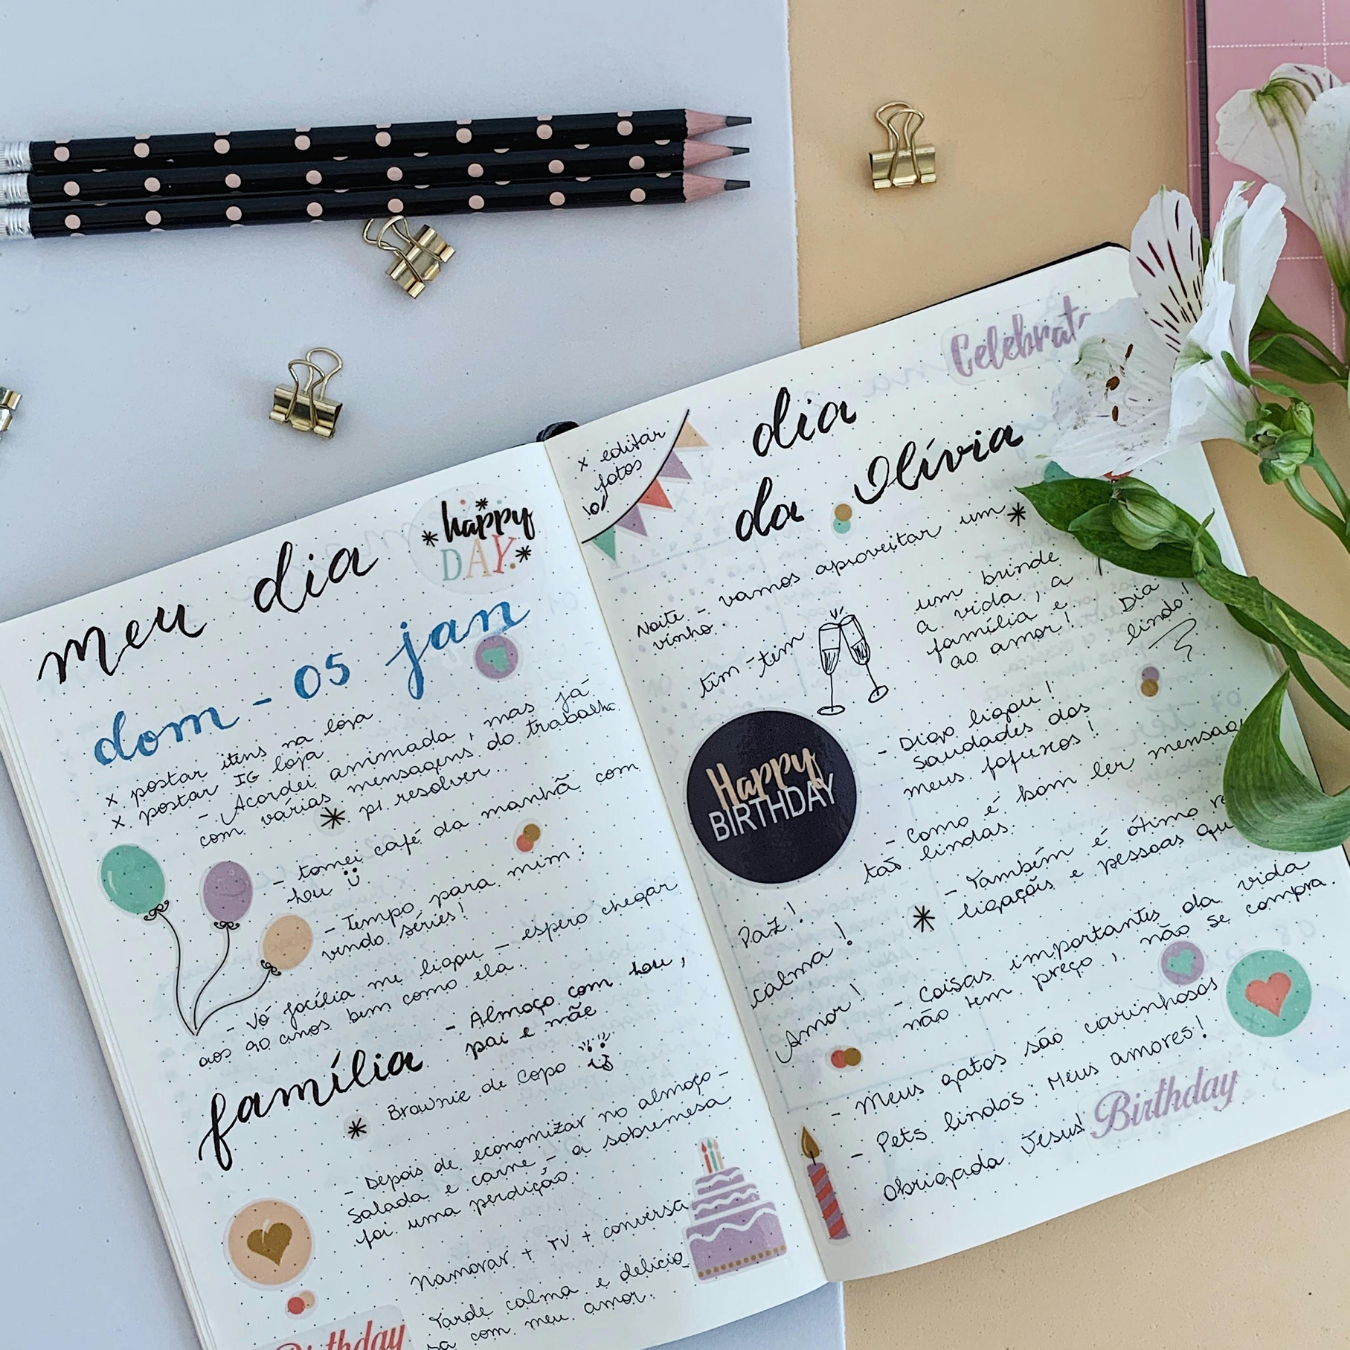 meu dia
happy
DAY.
dom - 05 jan
x postar itens na loja
x postar IG loja
- Acordei animada, mas já
com várias mensagens do trabalho
p/ resolver...
- tomei café da manhã com
lou
- Tempo para mim:
vendo séries!
- Vó Jocília me ligou - espero chegar
aos 90 anos bem como ela.
família
- Almoço com lou,
pai e mãe
Brownie de Copo
- Depois de economizar no almoço -
Salada e carne - a sobremesa
foi uma perdição.
Namorar + TV + conversa
Tarde calma e delicio
sa com meu amor.
Birthday
x editar
fotos
Celebrate
dia
da Olívia
Noite - vamos aproveitar um
vinho.
tim-tim
um brinde
a vida, a
família e
ao amor!
Dia
lindo!
Happy
BIRTHDAY
- Diogo ligou!
Saudades dos
meus fofuxos!
- Como é bom ler
tão lindas.
- Também é ótimo
ligações e pessoas
Paz!
calma!
Amor!
- Coisas importantes da vida
não tem preço, não se compra.
- Meus gatos são carinhosos
- Pets lindos: Meus amores!
Obrigada Jesus!
Birthday